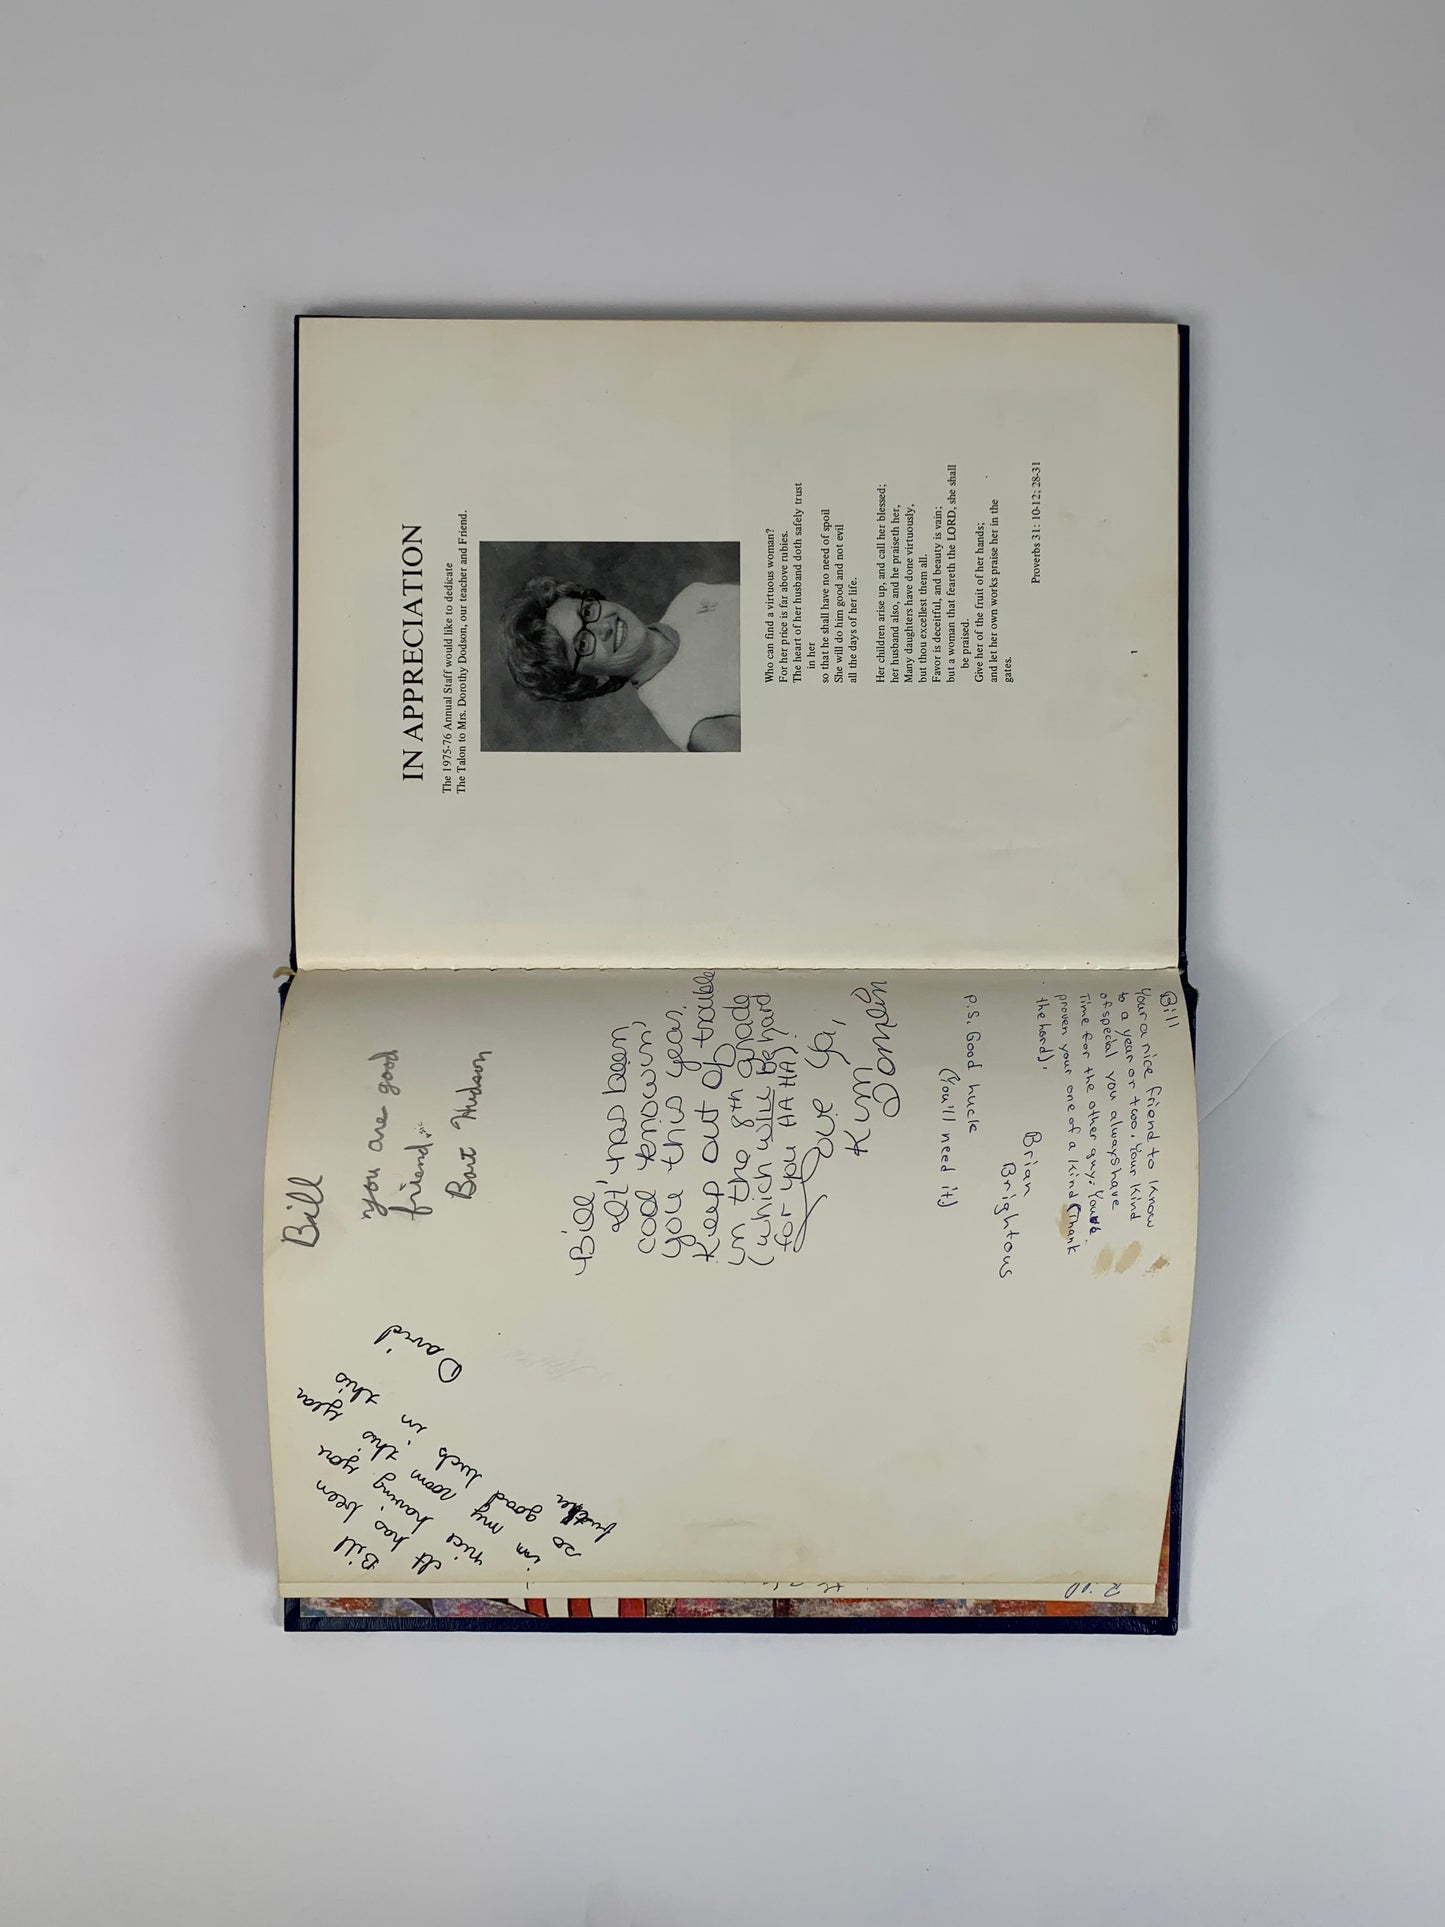 IN APPRECIATION
The 1975-76 Annual Staff would like to dedicate
The Talon to Mrs. Dorothy Dodson, our teacher and Friend.
Who can find a virtuous woman?
For her price is far above rubies.
The heart of her husband doth safely trust
in her
so that he shall have no need of spoil
She will do him good and not evil
all the days of her life.
Her children arise up, and call her blessed;
her husband also, and he praiseth her,
Many daughters have done virtuously,
but thou excellest them all.
Favor is deceitful, and beauty is vain;
but a woman that feareth the LORD, she shall
be praised.
Give her of the fruit of her hands;
and let her own works praise her in the
gates.
Proverbs 31: 10-12; 28-31
1
Bill
you are good
friend
Bart Hudson
Bill,
It has been
cool knowin'
you this year.
Keep out of trouble
in the 8th grade
(which will be hard
for you HA HA)!
Love Ya,
Kim
Bill
Your a nice friend to know
to a year or two. Your kind
of special you always have
Time for the other guy.
proven your one of a kind (Thank
the hard),
Brian
Brightous
P.S. Good huck
(You'll need it)
Bill
It has been
nice having you
in my room this year
so good luck in this
David
Bill